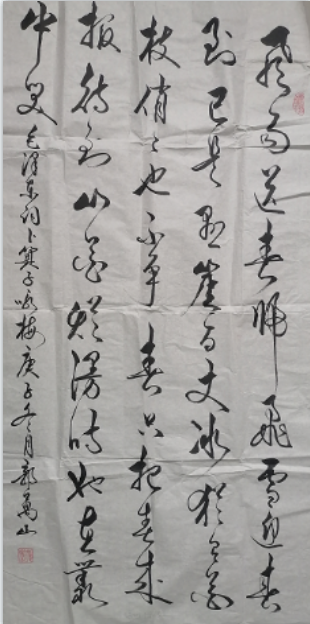 风雨送春归飛雪迎春
到已是悬崖百丈冰犹有花
枝俏々也不争春只把春来
报待到山花烂漫时她在叢
中笑 毛泽东词卜算子咏梅 庚子冬月郭萬山